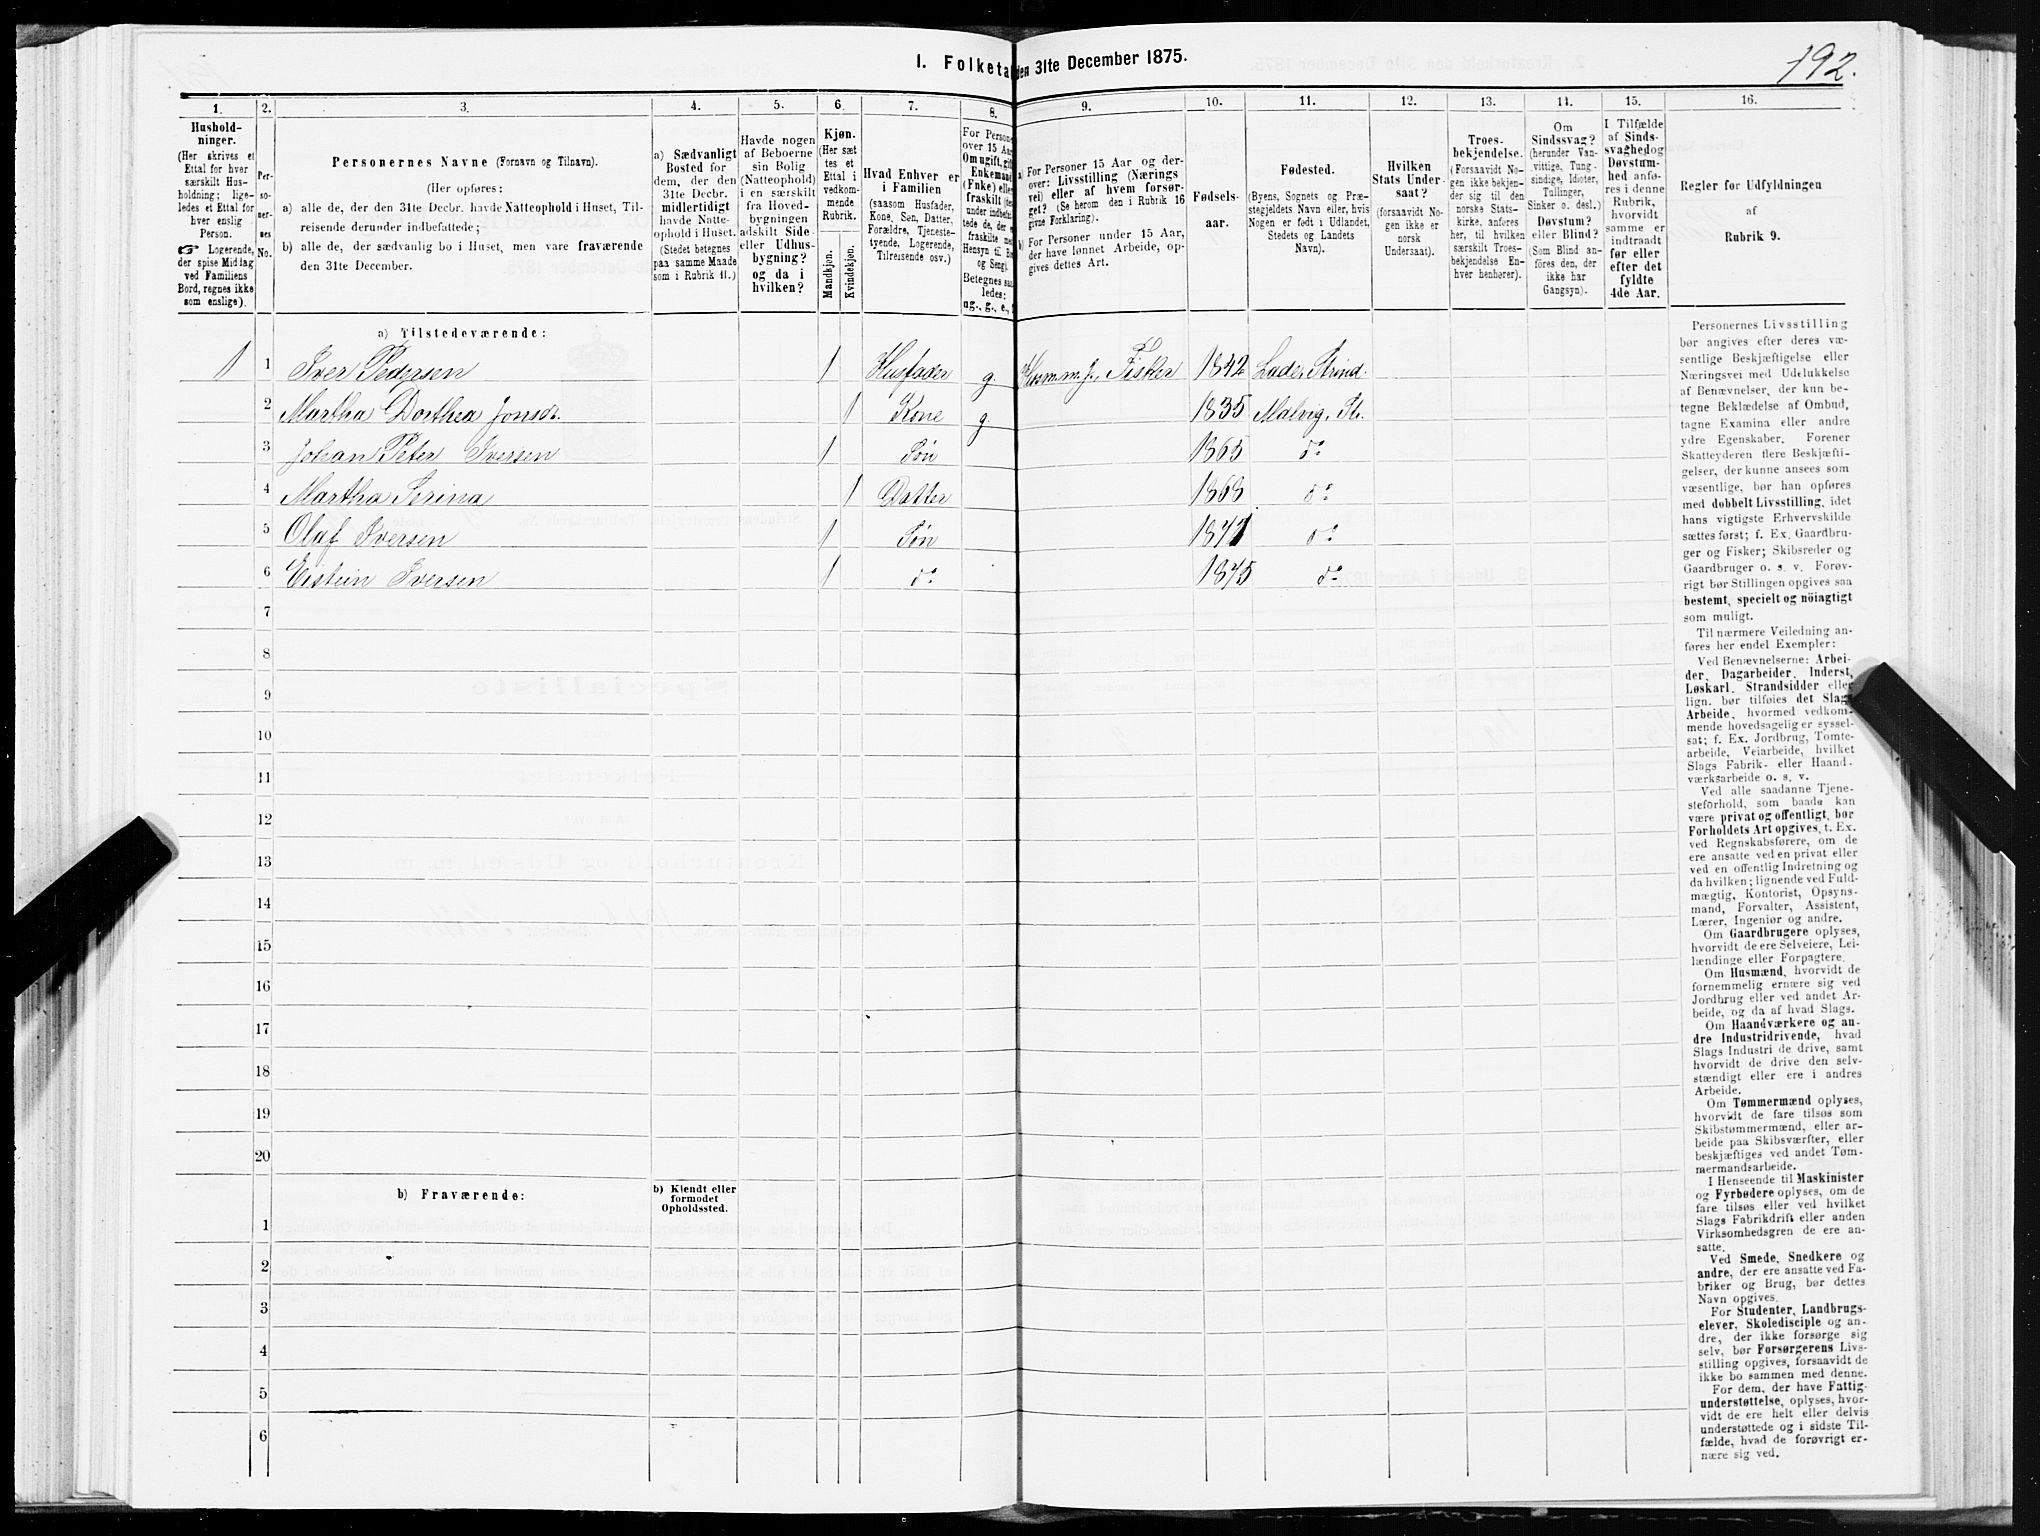 192.
I. Folketal den 31te December 1875.
1.
Hushold-
ninger.
(Her skrives et
Ettal for hver
særskilt Hus-
holdning; lige-
ledes et Ettal for
hver enslig
Person.
☞ Logerende,
der spise Middag
ved Familiens
Bord, regnes ikke
som enslige).
2.
Per-
so-
ner-
nes
No.
3.
Personernes Navne (Fornavn og Tilnavn).
(Her opføres:
a) alle de, der den 31te Decbr. havde Natteophold i Huset, Til-
reisende derunder indbefattede;
b) alle de, der sædvanlig bo i Huset, men vare fraværende
den 31te December.
4.
a) Sædvanligt
Bosted for
dem, der den
31te Decbr.
midlertidigt
havde Natte-
ophold i Huset.
(Stedet betegnes
paa samme Maade
som i Rubrik 11.)
5.
Havde nogen
af Beboerne
sin Bolig
(Natteophold)
i en særskilt
fra Hoved-
bygningen
adskilt Side-
eller Udhus-
bygning?
og da i
hvilken?
6.
Kjøn.
(Her sæt
tes et
Ettal i
vedkom-
mende
Rubrik.
Mandkjøn.
Kvindekjøn.
7.
Hvad Enhver er
i Familien
(saasom Husfader,
Kone, Søn, Datter,
Forældre, Tjeneste-
tyende, Logerende,
Tilreisende osv.)
8.
For Persone
over 15 Aar
Om ugift, gift
Enkemand
(Enke) eller
fraskilt (de
under indbefat-
tede de, der e
fraskilte med
Hensyn til Bo
og Seng).
Betegnes saa
ledes:
ug., g., e.,
9.
a) For Personer 15 Aar og der-
over: Livsstilling (Nærings
vei) eller af hvem forsør-
get? (Se herom den i Rubrik 16
givne Forklaring).
b) For Personer under 15 Aar,
der have lønnet Arbeide, op-
gives dettes Art.
10.
Fødsels-
aar.
11.
Fødested.
(Byens, Sognets og Præ-
stegjeldets Navn eller, hvis
Nogen er født i Udlandet,
Stedets og Landets
Navn).
12.
Hvilken
Stats Under-
saat?
(forsaavidt No-
gen ikke er
norsk
Undersaat).
13.
Troes-
bekjendelse.
(Forsaavidt No-
gen ikke bekjen-
der sig til den
norske Stats-
kirke, anføres
her, til hvilken
særskilt Troes-
bekjendelse En-
hver henhører).
14.
Om
Sindssvag?
(herunder Van-
vittige, Tung-
sindige, Idioter,
Tullinger,
Sinker o. desl.)
Døvstum?
eller Blind?
(Som Blind an-
føres den, der
ikke har
Gangsyn).
15.
I Tilfælde
af Sinds-
svaghed og
Døvstum-
hed anfø-
res i denne
Rubrik,
hvorvidt
samme er
indtraadt
før eller
efter det
fyldte
4de Aar.
16.
Regler for Udfyldningen
af
Rubrik 9.
a) Tilstedeværende:
1 1 Iver Pedersen 1 Husfader g. Husm. m. J., Fisker 1842 Lade, Strind.
2 Martha Dorthea Jonsdt. 1 Kone g. 1835 Malvig, St.
3 Johan Peter Iversen 1 Søn 1865 do
4 Martha Serina 1 Datter 1868 do
5 Olaf Iversen 1 Søn 1871 do
6 Eistein Iversen 1 do 1875 do
7
8
9
10
11
12
13
14
15
16
17
18
19
20
b) Fraværende:
b) Kjendt eller
formodet
Opholdssted.
1
2
3
4
5
6
Personernes Livsstilling
bør angives efter deres væ-
sentlige Beskjæftigelse eller
Næringsvei med Udelukkelse
af Benævnelser, der kun be-
tegne Beklædelse af Ombud,
tagne Examina eller andre
ydre Egenskaber. Forener
Skatteyderen flere Beskjæfti-
gelser, der kunne ansees som
væsentlige, bør han opføres
med dobbelt Livsstilling, idet
hans vigtigste Erhvervskilde
sættes først; f. Ex. Gaardbru-
ger og Fisker; Skibsreder og
Gaardbruger o. s. v. Forøv-
rigt bør Stillingen opgives saa
bestemt, specielt og nöiagtigt
som muligt.
Til nærmere Veiledning an-
føres her endel Exempler:
Ved Benævnelserne: Arbei-
der, Dagarbeider, Inderst,
Løskarl, Strandsidder eller
lign. bør tilføies det Slags
Arbeide, hvormed vedkom-
mende hovedsagelig er syssel-
sat; f. Ex. Jordbrug, Tomte-
arbeide, Veiarbeide, hvilket
Slags Fabrik- eller Haand-
værksarbeide o. s. v.
Ved alle saadanne Tjene-
steforhold, som baade kan
være privat og offentligt, bør
Forholdets Art opgives, t. Ex.
ved Regnskabsførere, om de
ere ansatte ved en privat eller
ved en offentlig Indretning og
da hvilken; lignende ved Fuld-
mægtig, Kontorist, Opsyns-
mand, Forvalter, Assistent,
Lærer, Ingeniør og andre.
Om Gaardbrugere oplyses,
hvorvidt de ere Selveiere, Lei-
lændinge eller Forpagtere.
Om Husmænd, hvorvidt de
fornemmelig ernære sig ved
Jordbrug eller ved andet Ar-
beide, og da af hvad Slags.
Om Haandværkere og an-
dre Industridrivende, hvad
Slags Industri de drive, samt
hvorvidt de drive den selv-
stændigt eller ere i andres
Arbeide.
Om Tømmermænd oplyses,
hvorvidt de fare tilsøs som
Skibstømmermænd, eller ar-
beide paa Skibsværfter, eller
beskjæftiges ved andet Tøm-
mermandsarbeide.
I Henseende til Maskinister
og Fyrbødere oplyses, om de
fare tilsøs eller ved hvilket
Slags Fabrikdrift eller anden
Virksomhedsgren de ere an-
satte.
Ved Smede, Snedkere og
andre, der ere ansatte ved Fa-
briker og Brug, bør dettes
Navn opgives.
For Studenter, Landbrugs-
elever, Skoledisciple og an-
dre, der ikke forsørge sig
selv, bør Forsørgerens Livs-
stilling opgives, forsaavidt de
ikke bo sammen med denne.
For dem, der have Fattig-
understøttelse, oplyses, hvor-
vidt de ere helt eller delvis
understøttede og i sidste Til-
fælde, hvad de forøvrigt er-
nære sig ved.